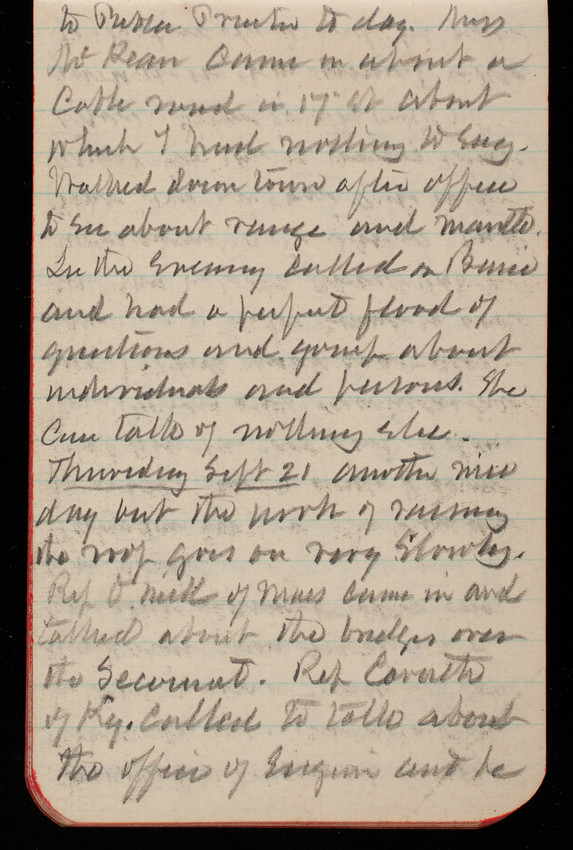 to Redfield Proctor to day. Miss
McKean came in about a
Cable road in 17 st about
which I had nothing to say.
Walked down town after office
to see about range and mantle.
In the evening called on
and had a perfect flood of
questions and gossip about
individuals and persons. She
can talk of nothing else.
Thursday Sept 21 another nice
day but the work of raising
the roof goes on very slowly.
Rep O'Neill of Mass came in and
talked about the bridges over
the. Rep Caruth
of Ky. called to talk about
the office of Engine and he